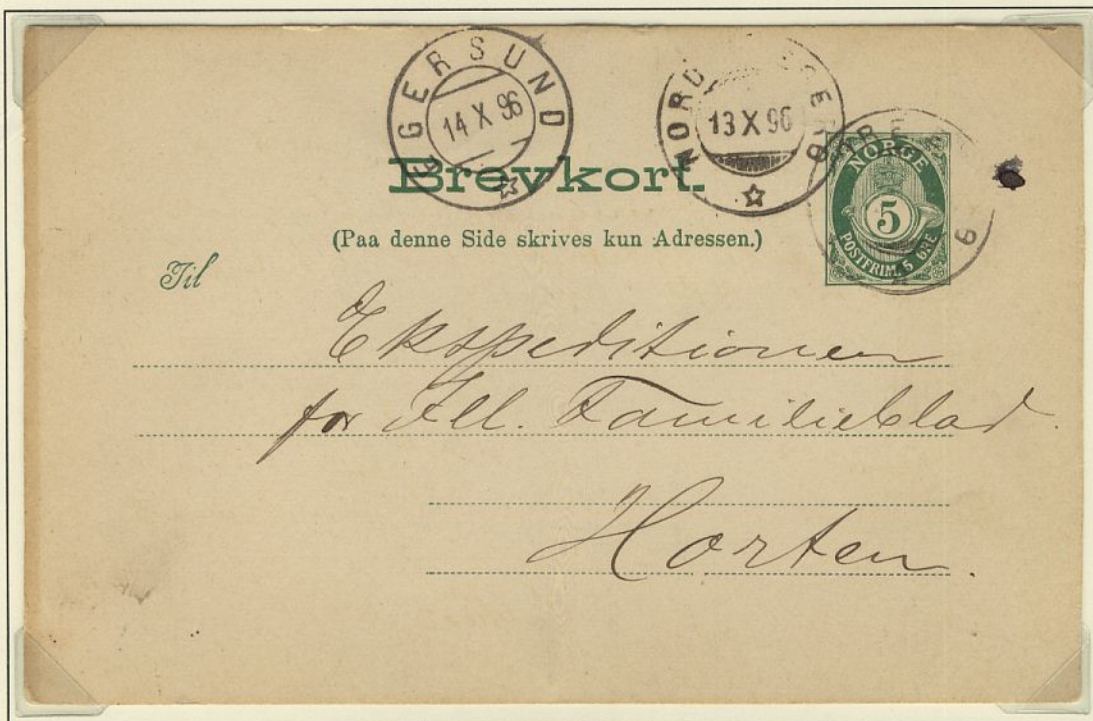 EGERSUND
14 X 96
13 X 96
Brevkort.
NORGE
5
POSTFRIM. 5 ØRE
(Paa denne Side skrives kun Adressen.)
Til
Ekspeditionen
for Ill. Familieblad.
Horten.